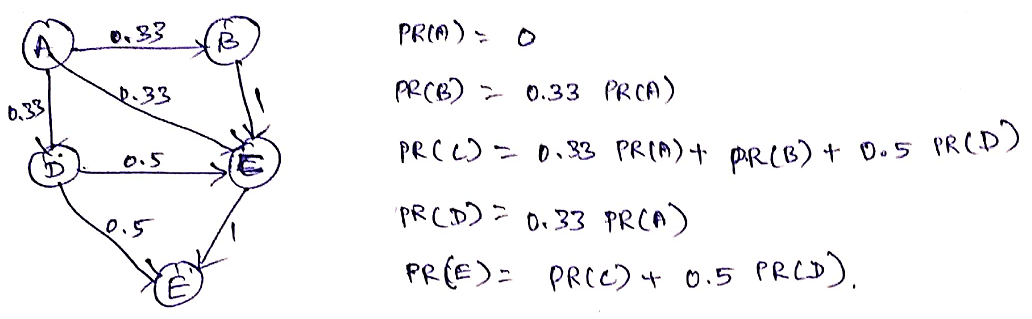 A 0.33 B
0.33
0.33
1
D 0.5 E
0.5
1
E
PR(A) = 0
PR(B) = 0.33 PR(A)
PR(C) = 0.33 PR(A) + PR(B) + 0.5 PR(D)
PR(D) = 0.33 PR(A)
PR(E) = PR(C) + 0.5 PR(D).